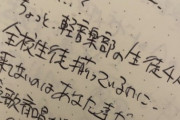 ちょっと、軽音楽部の生徒4人
全校生徒揃っているのに…
来ないのはあなた達だ
歌斉唱